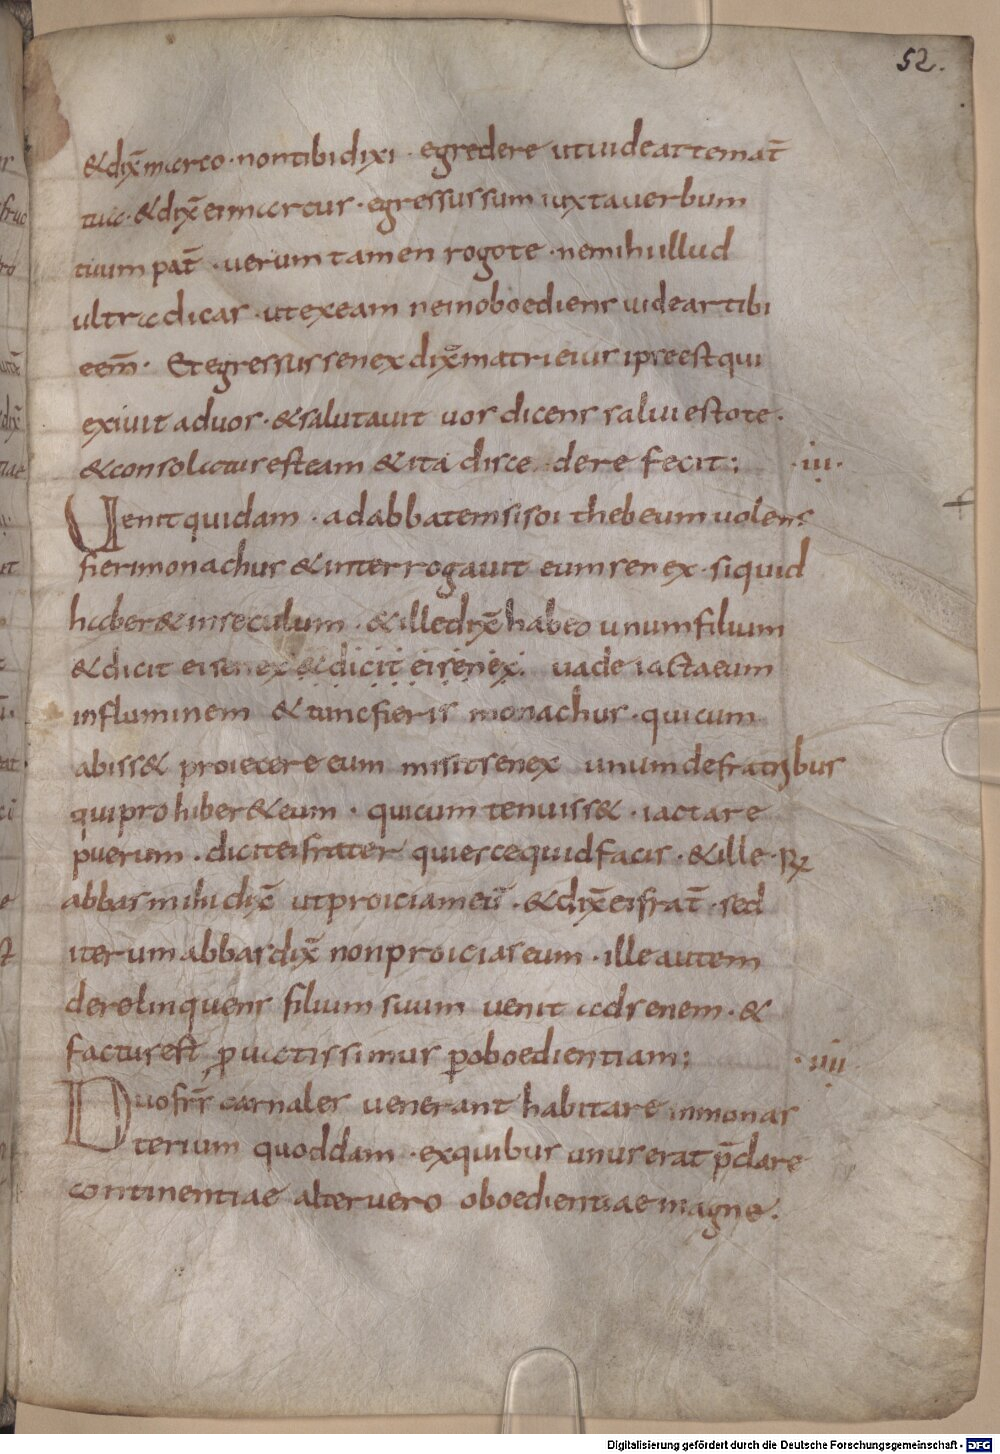 52.
& dix̄ marco · non tibi dixi · egredere ut uideat te mat̄
tua · & dix̄ ei marcus · egressus sum iuxta uerbum
tuum pat̄ · uerum tamen rogo te · ne mihi illud
ultra dicas · ut exeam ne inoboediens uidear tibi
eem̄ · Et egressus senex dix̄ matri eius ipse est qui
exiuit ad uos · & salutauit uos dicens salui estote ·
& consolatus est eam & ita discedere fecit ;
· iii ·
Uenit quidam · ad abbatem sisoi thebeum uolens
fieri monachus & interrogauit eum senex · si quid
haber& in seculum · & ille dix̄ habeo unum filium
& dicit ei senex & dicit ei senex . uade iacta eum
in fluminem & tunc fieris monachus · qui cum
abiss& proiecere eum misit senex unum de fratribus
qui prohiber& eum · qui cum tenuiss& · iactare
puerum . dicit ei frater quiesce quid facis · & ille · R̷
abbas mihi dix̄ ut proiciam eū · & dix̄ ei frat̄ · sed
iterum abbas dix̄ non proicias eum · ille autem
derelinquens filium suum uenit ad senem · &
factus est ꝓuactissimus ꝑ oboedientiam ;
· iiii ·
Duo fr̄s carnales uenerant habitare in monas
terium quoddam · ex quibus unus erat p̄clare
continentiae alter uero oboedientiae magne .
Digitalisierung gefördert durch die Deutsche Forschungsgemeinschaft - DFG